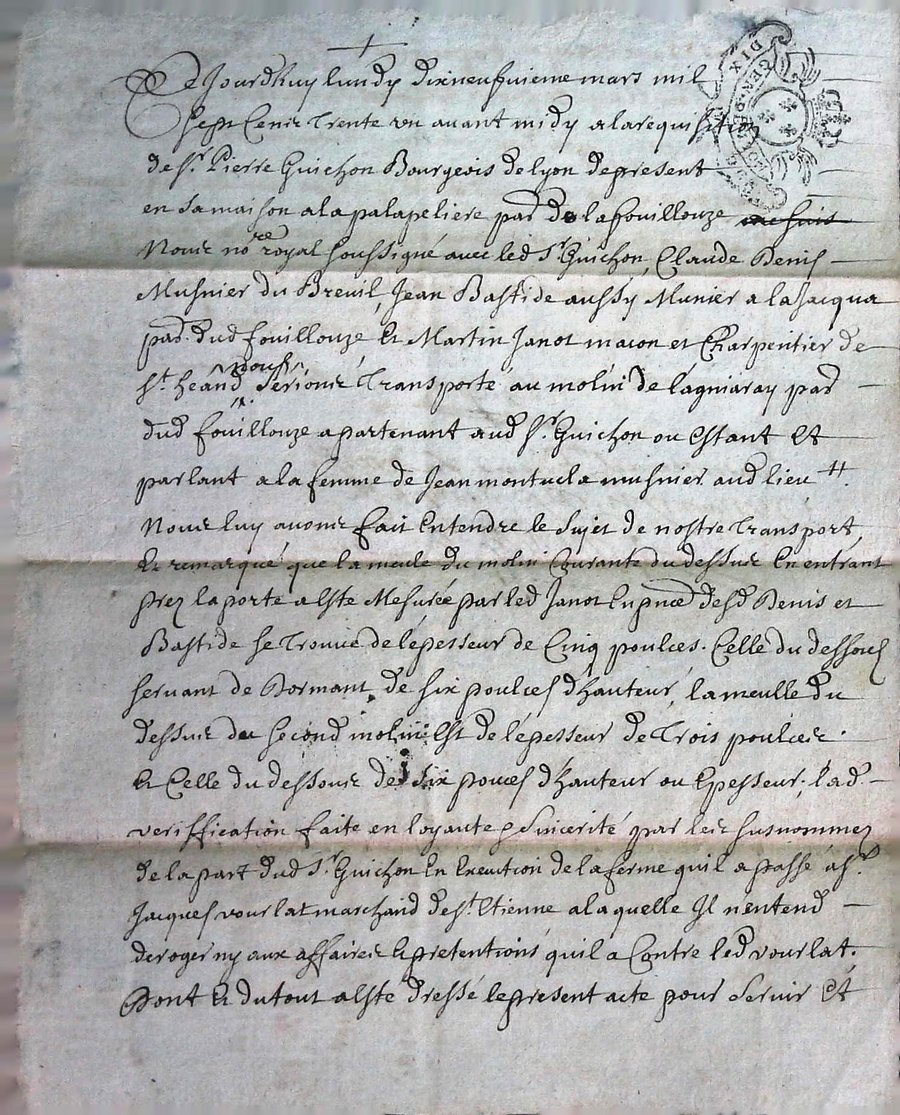 Ce Jourdhuy lundy dixneufuieme mars mil
sept Cens Trente un auant midy a la requisition
de sr. Pierre Guichon Bourgeois de lyon de present
en sa maison a la palapeliere par de la fouillouze
Nous nore royal soussigné auec led Sr Guichon, Claude Denis
Musnier du Breuil, Jean Bastide aussy Munier a la Jacqua
par. dud fouillouze Et Martin Janot macon et Charpentier de
St. heand nous serions Transporté au molin de lagniaray par
dud fouillouze apartenant aud sr. Guichon ou Estant Et
parlant a la femme de Jean montucla musnier aud lieu
Nous luy auons fait Entendre le sujet de nostre Transport,
Et remarqué que la meule du molin Courante du dessus En entrant
prez la porte a Esté Mesurée par led Janot En pnce desd Denis et
Bastide se Trouue de lépesseur de Cinq poulces. Celle du dessous
seruant de Dormant de six poulces d'hauteur, la meulle du
dessus du second molin Est de lépesseur de Trois poulces.
Et Celle du dessous de six pouces d'hauteur ou Epesseur. lad
veriffication faite en loyauté & Sincerité par les susnommez
de la part dud Sr. Guichon En Execution de la ferme quil a passé a sr.
Jacques vourlat marchand de st. Etienne a laquelle Il n'entend
deroger ny aux affaires & pretentions quil a Contre led vourlat.
Dont Et du tout a Esté dressé le present acte pour seruir Et
DIX